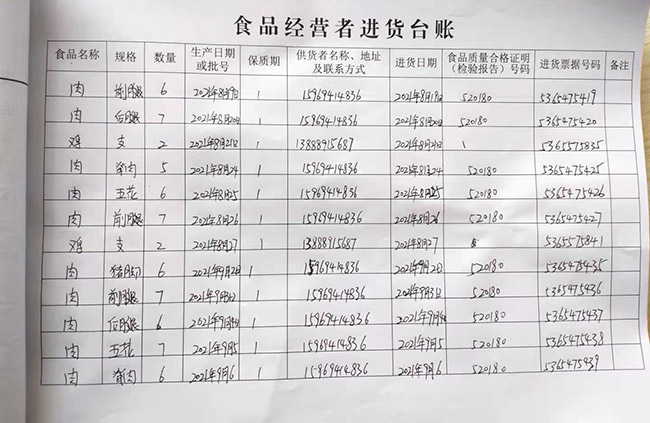 食品经营者进货台账
食品名称 规格 数量 生产日期或批号 保质期 供货者名称、地址及联系方式 进货日期 食品质量合格证明（检验报告）号码 进货票据号码 备注
肉 前腿 6 2021年8月19日 1 15969414836 2021年8月19日 520180 5365475419
肉 后腿 7 2021年8月20日 1 15969414836 2021年8月20日 520180 5365475420
鸡 支 2 2021年8月21日 1 13888915687 2021年8月21日 \ 5365575835
肉 猪肉 5 2021年8月24 1 15969414836 2021年8月24 520180 5365475425
肉 五花 6 2021年8月25 1 15969414836 2021年8月25 520180 5365475426
肉 前腿 7 2021年8月26 1 15969414836 2021年8月26 520180 5365475427
鸡 支 2 2021年8月27 1 13888915687 2021年8月27 5365575841
肉 猪脚 6 2021年9月2日 1 15969414836 2021年9月2日 520180 5365475435
肉 前腿 7 2021年9月3日 1 15969414836 2021年9月3日 520180 5365475436
肉 后腿 6 1 15969414836 2021年9月4日 520180 5365475437
肉 五花 7 2021年9月5 1 15969414836 2021年9月5 520180 5365475438
肉 猪肉 6 2021年9月6 1 15969414836 2021年9月6 520180 5365475439